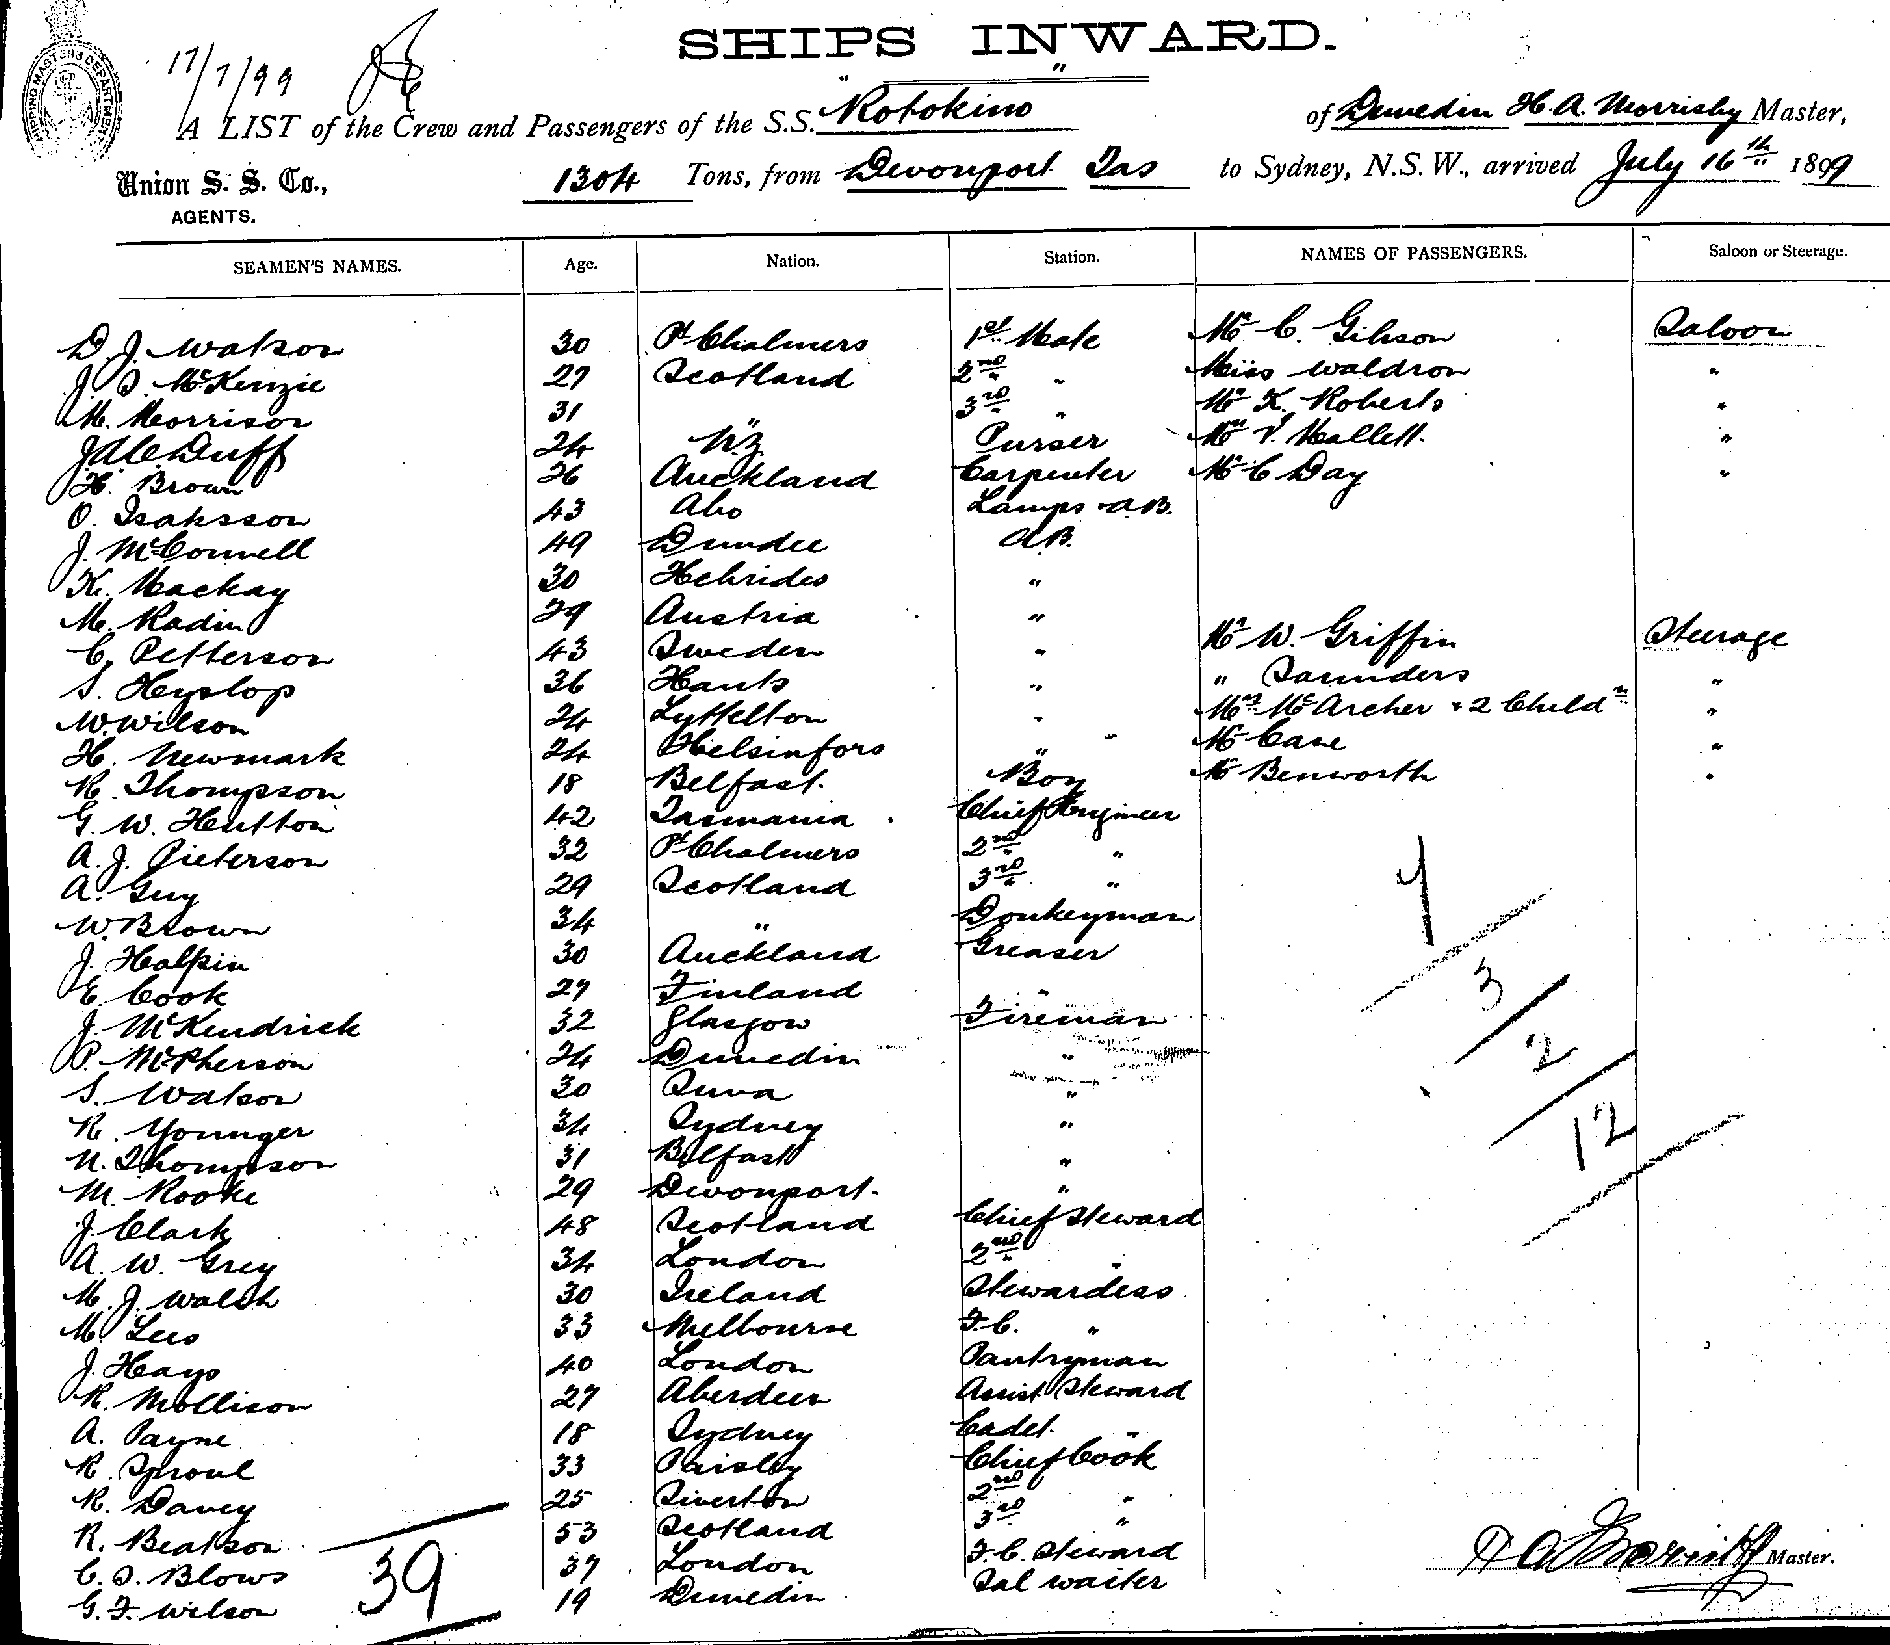 SHIPPING MASTERS DEPARTMENT
17/7/99
SHIPS INWARD.
A LIST of the Crew and Passengers of the S.S. Rotokino of Dunedin H. A. Morrisby Master,
Union S. S. Co., AGENTS. 1304 Tons, from Devonport Tas to Sydney, N.S.W., arrived July 16th 1899
SEAMEN'S NAMES. Age. Nation. Station. NAMES OF PASSENGERS. Saloon or Steerage.
D. J. Watson 30 Pt Chalmers 1st Mate Mr C. Gibson Saloon
J. S. McKenzie 27 Scotland 2nd " Miss Waldron "
M. Morrison 31 " 3rd " Mr K. Roberts "
J. McDuff 24 N.Z. Purser V. Hallett "
H. Brown 26 Auckland Carpenter Mr C Day "
O. Isaksson 43 Abo Lamps & A.B.
J. McConnell 49 Dundee A.B.
K. Mackay 30 Hebrides "
M. Radin 29 Austria "
C. Petterson 43 Sweden " Mr W. Griffin Steerage
S. Heyslop 36 Hants " " Saunders "
W. Wilson 24 Lyttelton " Mrs McArcher & 2 Childn "
H. Newmark 24 Helsinfors " Mr Case "
R. Thompson 18 Belfast. Boy Mr Benworth "
G. W. Hutton 42 Tasmania Chief Engineer
A. J. Pieterson 32 Pt Chalmers 2nd "
A. Guy 29 Scotland 3rd "
W. Brown 34 " Donkeyman
J. Halpin 30 Auckland Greaser
E. Cook 27 Finland "
J. McKendrick 32 Glasgow Fireman
P. McPherson 24 Dunedin "
S. Watson 30 Suva "
R. Younger 34 Sydney "
N. Thompson 31 Belfast "
M. Rooke 29 Devonport. "
J. Clark 48 Scotland Chief Steward
A. W. Grey 34 London 2nd "
M. J. Walsh 30 Ireland Stewardess
M. Lees 33 Melbourne F.C. "
J. Hays 40 London Pantryman
R. Mollison 27 Aberdeen Assist Steward
A. Payne 18 Sydney Cadet. "
R. Sproul 33 Paisley Chief Cook
R. Davey 25 Tiverton 2nd "
R. Beatson 53 Scotland 3rd "
C. S. Blows 37 London F.C. Steward
G. F. Wilson 19 Dunedin Sal waiter
39
3
2
12
H A Morrisby Master.